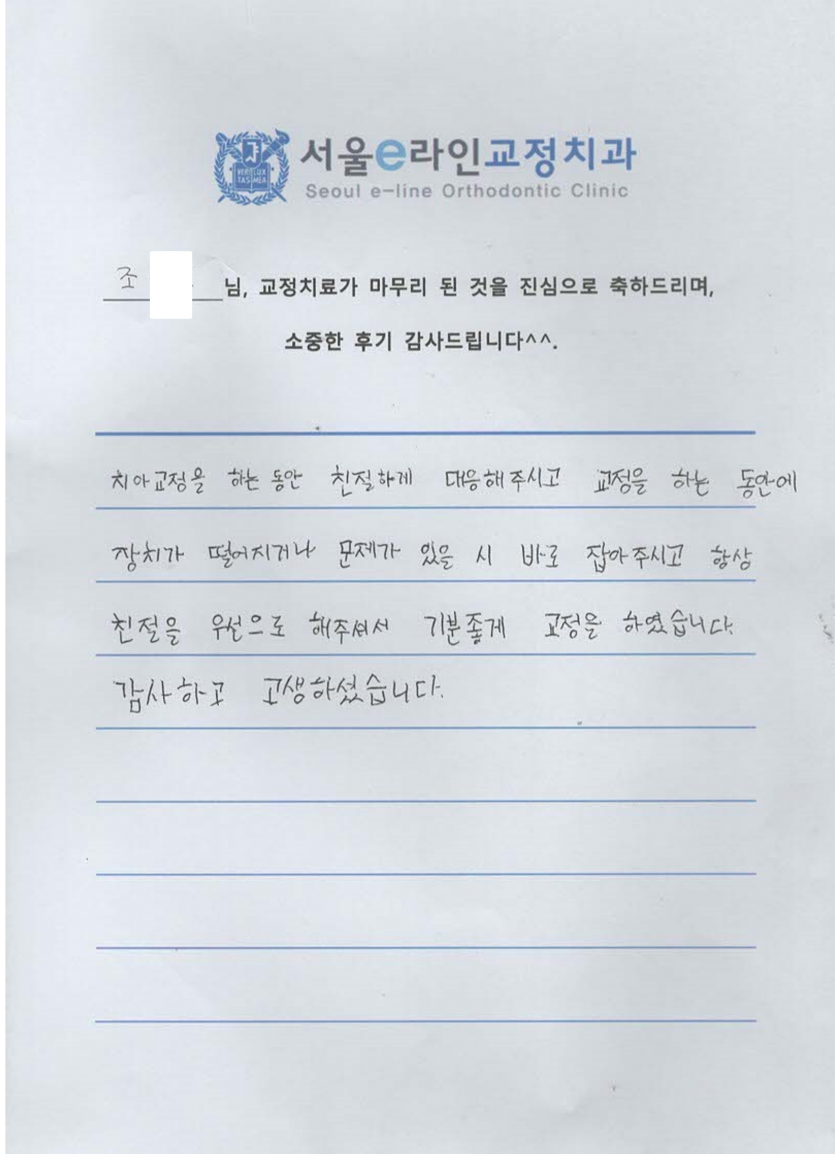 서울e라인교정치과
Seoul e-line Orthodontic Clinic
VERI LUX
TAS MEA
조 님, 교정치료가 마무리 된 것을 진심으로 축하드리며,
소중한 후기 감사드립니다^^.
치아교정을 하는 동안 친절하게 대응해주시고 교정을 하는 동안에
장치가 떨어지거나 문제가 있을 시 바로 잡아주시고 항상
친절을 우선으로 해주셔서 기분좋게 교정을 하였습니다.
감사하고 고생하셨습니다.